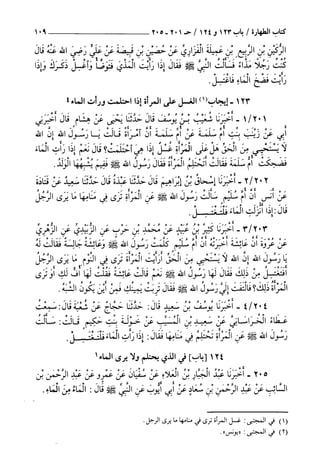 كتاب الطهارة / باب ١٢٣ و ١٢٤ / حـ ٢٠١ - ٢٠٥ ١٠٩
الرُّكَيْنِ بْنِ الرَّبِيعِ بْنِ عَمِيلَةَ الْفَزَارِيِّ عَنْ حُصَيْنِ بْنِ قَبِيصَةَ عَنْ عَلِيٍّ رَضِيَ اللهُ عَنْهُ قَالَ
كُنْتُ رَجُلًا مَذَّاءً فَسَأَلْتُ النَّبِيَّ ﷺ فَقَالَ إِذَا رَأَيْتَ الْمَذْيَ فَتَوَضَّأْ وَاغْسِلْ ذَكَرَكَ وَإِذَا
رَأَيْتَ فَضْخَ الْمَاءِ فَاغْتَسِلْ.
١٢٣ - إيجاب(١) الغسل على المرأة إذا احتلمت ورأت الماء ٤
٢٠١/١ - أَخْبَرَنَا شُعَيْبُ بْنُ يُوسُفَ قَالَ حَدَّثَنَا يَحْيَى عَنْ هِشَامٍ قَالَ أَخْبَرَنِي
أَبِي عَنْ زَيْنَبَ بِنْتِ أُمِّ سَلَمَةَ عَنْ أُمِّ سَلَمَةَ أَنَّ امْرَأَةً قَالَتْ يَا رَسُولَ اللهِ إِنَّ اللهَ
لَا يَسْتَحْيِي مِنَ الْحَقِّ هَلْ عَلَى الْمَرْأَةِ غُسْلٌ إِذَا هِيَ احْتَلَمَتْ؟ قَالَ نَعَمْ إِذَا رَأَتِ الْمَاءَ
فَضَحِكَتْ أُمُّ سَلَمَةَ فَقَالَتْ أَتَحْتَلِمُ الْمَرْأَةُ فَقَالَ رَسُولُ اللهِ ﷺ فَفِيمَ يُشْبِهُهَا الْوَلَدُ.
٢٠٢/٢ - أَخْبَرَنَا إِسْحَاقُ بْنُ إِبْرَاهِيمَ قَالَ حَدَّثَنَا عَبْدَةُ قَالَ حَدَّثَنَا سَعِيدٌ عَنْ قَتَادَةَ
عَنْ أَنَسٍ أَنَّ أُمَّ سُلَيْمٍ سَأَلَتْ رَسُولَ اللهِ ﷺ عَنِ الْمَرْأَةِ تَرَى فِي مَنَامِهَا مَا يَرَى الرَّجُلُ
قَالَ: إِذَا أَنْزَلَتِ الْمَاءَ فَلْتَغْتَسِلْ.
٢٠٣/٣ - أَخْبَرَنَا كَثِيرُ بْنُ عُبَيْدٍ عَنْ مُحَمَّدِ بْنِ حَرْبٍ عَنِ الزُّبَيْدِيِّ عَنِ الزُّهْرِيِّ
عَنْ عُرْوَةَ أَنَّ عَائِشَةَ أَخْبَرَتْهُ أَنَّ أُمَّ سُلَيْمٍ كَلَّمَتْ رَسُولَ اللهِ ﷺ وَعَائِشَةُ جَالِسَةٌ فَقَالَتْ لَهُ
يَا رَسُولَ اللهِ إِنَّ اللهَ لَا يَسْتَحْيِي مِنَ الْحَقِّ أَرَأَيْتَ الْمَرْأَةَ تَرَى فِي النَّوْمِ مَا يَرَى الرَّجُلُ
أَفَتَغْتَسِلُ مِنْ ذَلِكَ فَقَالَ لَهَا رَسُولُ اللهِ ﷺ نَعَمْ قَالَتْ عَائِشَةُ فَقُلْتُ لَهَا أُفٍّ لَكِ أَوَ تَرَى
الْمَرْأَةُ ذَلِكَ؟ فَالْتَفَتَ إِلَيَّ رَسُولُ اللهِ ﷺ فَقَالَ تَرِبَتْ يَمِينُكِ فَمِنْ أَيْنَ يَكُونُ الشَّبَهُ.
٢٠٤/٤ - أَخْبَرَنَا يُوسُفُ بْنُ سَعِيدٍ قَالَ: حَدَّثَنَا حَجَّاجٌ عَنْ شُعْبَةَ قَالَ: سَمِعْتُ
عَطَاءً الْخُرَاسَانِيَّ عَنْ سَعِيدِ بْنِ الْمُسَيَّبِ عَنْ خَوْلَةَ بِنْتِ حَكِيمٍ قَالَتْ: سَأَلْتُ
رَسُولَ اللهِ ﷺ عَنِ الْمَرْأَةِ تَحْتَلِمُ فِي مَنَامِهَا فَقَالَ: إِذَا رَأَتِ الْمَاءَ فَلْتَغْتَسِلْ.
١٢٤ [باب] في الذي يحتلم ولا يرى الماء ١
٢٠٥ - أَخْبَرَنَا عَبْدُ الْجَبَّارِ بْنُ الْعَلَاءِ عَنْ سُفْيَانَ عَنْ عَمْرٍو عَنْ عَبْدِ الرَّحْمَنِ بْنِ
السَّائِبِ عَنْ عَبْدِ الرَّحْمَنِ بْنِ سُعَادٍ عَنْ أَبِي أَيُّوبَ عَنِ النَّبِيِّ ﷺ قَالَ: الْمَاءُ مِنَ الْمَاءِ.
(١) في المجتبى: غسل المرأة ترى في منامها ما يرى الرجل.
(٢) في المجتبى: «يونس».